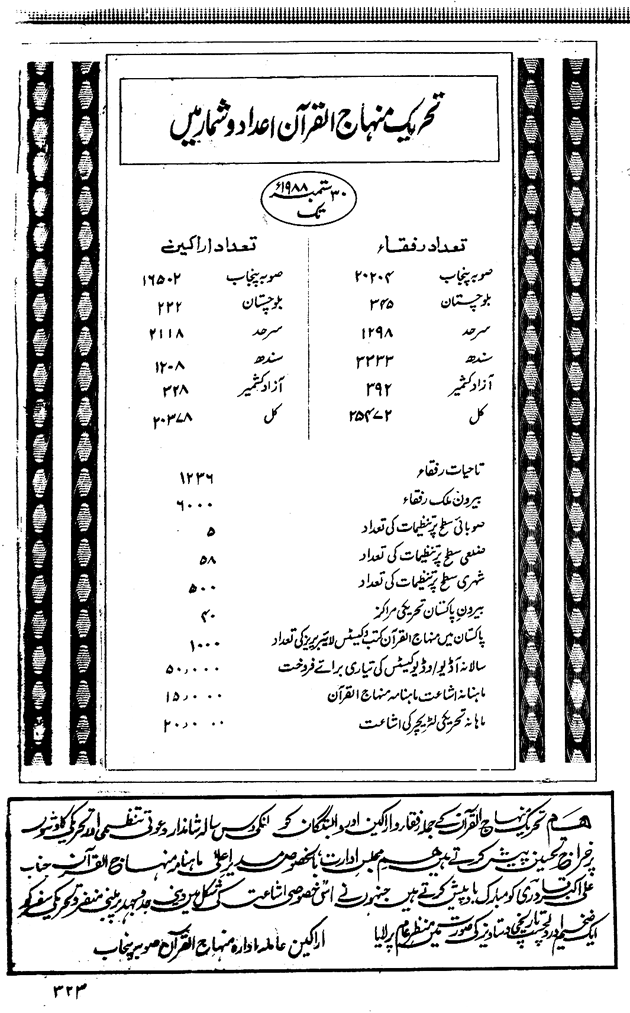 تحریک منہاج القرآن اعداد و شمار میں
۳۰ ستمبر ۱۹۸۸ء
تک
تعداد رفقاء
صوبہ پنجاب ۲۰۲۰۴
بلوچستان ۳۴۵
سرحد ۱۲۹۸
سندھ ۳۲۳۳
آزاد کشمیر ۳۹۲
کل ۲۵۴۷۲
تعداد اراکین
صوبہ پنجاب ۱۶۵۰۲
بلوچستان ۲۲۲
سرحد ۲۱۱۸
سندھ ۱۲۰۸
آزاد کشمیر ۳۲۸
کل ۲۰۳۷۸
تاحیات رفقاء ۱۲۳۶
بیرون ملک رفقاء ۶۰۰۰
صوبائی سطح پر تنظیمات کی تعداد ۵
ضلعی سطح پر تنظیمات کی تعداد ۵۸
شہری سطح پر تنظیمات کی تعداد ۵۰۰
بیرون پاکستان تحریکی مراکز ۴۰
پاکستان میں منہاج القرآن کتب و کیسٹس لائبریریز کی تعداد ۱۰۰۰
سالانہ آڈیو اوڈیو کیسٹس کی تیاری برائے فروخت ۵۰,۰۰۰
ماہنانہ اشاعت ماہنامہ منہاج القرآن ۱۵,۰۰۰
ماہانہ تحریکی لٹریچر کی اشاعت ۲۰,۰۰۰
ہم تحریک منہاج القرآن کے جملہ رفقاء و اراکین اور وابستگان کو انکی دس سالہ شاندار دعوتی تنظیمی اور تحریکی کاوشوں
پر خراج تحسین پیش کرتے ہیں ہم مجلس ادارت بالخصوص مدیر اعلیٰ ماہنامہ منہاج القرآن جناب
علی اکبر قادری کو مبارک باد پیش کرتے ہیں جنہوں نے اس خصوصی اشاعت کی شکل میں دینی جدوجہد پر مبنی منفرد تحریکی سفر کو
ایک ضخیم اور دلچسپ تاریخی دستاویز کی صورت میں منظر عام پر لایا
اراکین عاملہ ادارہ منہاج القرآن صوبہ پنجاب
۳۲۳